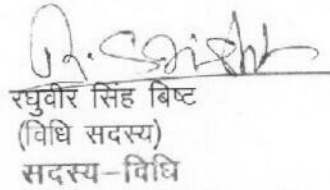 R. S. Bisht
रघुवीर सिंह बिष्ट
(विधि सदस्य)
सदस्य-विधि